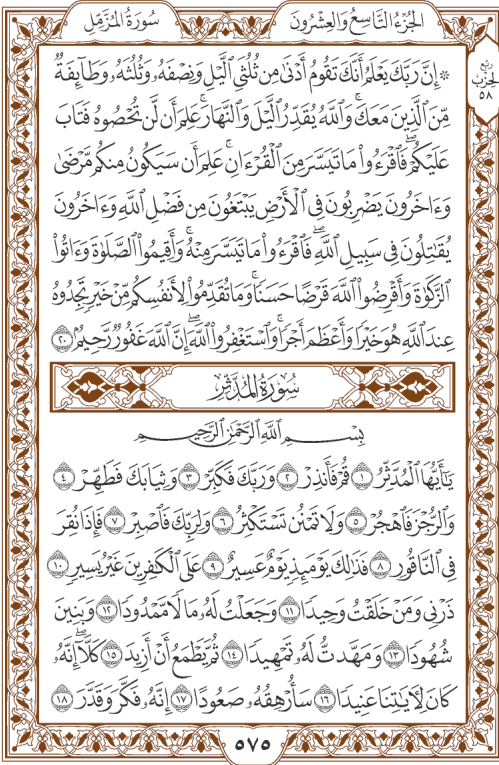 سُورَةُ المُزَّمِّل
الجُزْءُ التَّاسِعُ وَالعِشْرُونَ
ربع
الحزب
٥٨
۞ إِنَّ رَبَّكَ يَعْلَمُ أَنَّكَ تَقُومُ أَدْنَىٰ مِن ثُلُثَيِ ٱلَّيْلِ وَنِصْفَهُۥ وَثُلُثَهُۥ وَطَآئِفَةٌ
مِّنَ ٱلَّذِينَ مَعَكَۚ وَٱللَّهُ يُقَدِّرُ ٱلَّيْلَ وَٱلنَّهَارَۚ عَلِمَ أَن لَّن تُحْصُوهُ فَتَابَ
عَلَيْكُمْۖ فَٱقْرَءُوا۟ مَا تَيَسَّرَ مِنَ ٱلْقُرْءَانِۚ عَلِمَ أَن سَيَكُونُ مِنكُم مَّرْضَىٰ
وَءَاخَرُونَ يَضْرِبُونَ فِي ٱلْأَرْضِ يَبْتَغُونَ مِن فَضْلِ ٱللَّهِ وَءَاخَرُونَ
يُقَٰتِلُونَ فِي سَبِيلِ ٱللَّهِۖ فَٱقْرَءُوا۟ مَا تَيَسَّرَ مِنْهُۚ وَأَقِيمُوا۟ ٱلصَّلَوٰةَ وَءَاتُوا۟
ٱلزَّكَوٰةَ وَأَقْرِضُوا۟ ٱللَّهَ قَرْضًا حَسَنًاۚ وَمَا تُقَدِّمُوا۟ لِأَنفُسِكُم مِّنْ خَيْرٍ تَجِدُوهُ
عِندَ ٱللَّهِ هُوَ خَيْرًا وَأَعْظَمَ أَجْرًاۚ وَٱسْتَغْفِرُوا۟ ٱللَّهَۖ إِنَّ ٱللَّهَ غَفُورٌ رَّحِيمٌۢ ٢٠
سُورَةُ المُدَّثِّرِ
بِسْمِ ٱللَّهِ ٱلرَّحْمَٰنِ ٱلرَّحِيمِ
يَٰٓأَيُّهَا ٱلْمُدَّثِّرُ ١ قُمْ فَأَنذِرْ ٢ وَرَبَّكَ فَكَبِّرْ ٣ وَثِيَابَكَ فَطَهِّرْ ٤
وَٱلرُّجْزَ فَٱهْجُرْ ٥ وَلَا تَمْنُن تَسْتَكْثِرُ ٦ وَلِرَبِّكَ فَٱصْبِرْ ٧ فَإِذَا نُقِرَ
فِي ٱلنَّاقُورِ ٨ فَذَٰلِكَ يَوْمَئِذٍ يَوْمٌ عَسِيرٌ ٩ عَلَى ٱلْكَٰفِرِينَ غَيْرُ يَسِيرٍ ١٠
ذَرْنِي وَمَنْ خَلَقْتُ وَحِيدًا ١١ وَجَعَلْتُ لَهُۥ مَالًا مَّمْدُودًا ١٢ وَبَنِينَ
شُهُودًا ١٣ وَمَهَّدتُّ لَهُۥ تَمْهِيدًا ١٤ ثُمَّ يَطْمَعُ أَنْ أَزِيدَ ١٥ كَلَّآۖ إِنَّهُۥ
كَانَ لِأٓيَٰتِنَا عَنِيدًا ١٦ سَأُرْهِقُهُۥ صَعُودًا ١٧ إِنَّهُۥ فَكَّرَ وَقَدَّرَ ١٨
٥٧٥